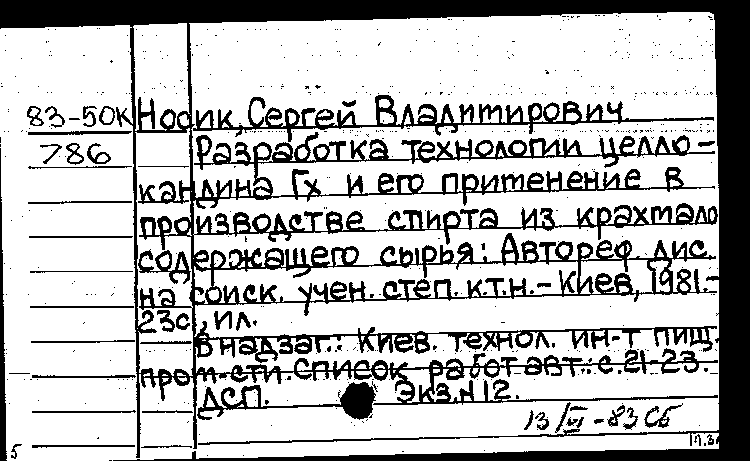 83-50К Носик, Сергей Владимирович
786 Разработка технологии целло-
кандина Гх и его применение в
производстве спирта из крахмало
содержащего сырья: Автореф. дис.
на соиск. учен. степ. к.т.н. - Киев, 1981.-
23с., ил.
В надзаг.: Киев. технол. ин-т пищ.
пром-сти. Список работ авт.: с.21-23.
ДСП. Экз.N12.
13/VI-83 Сб